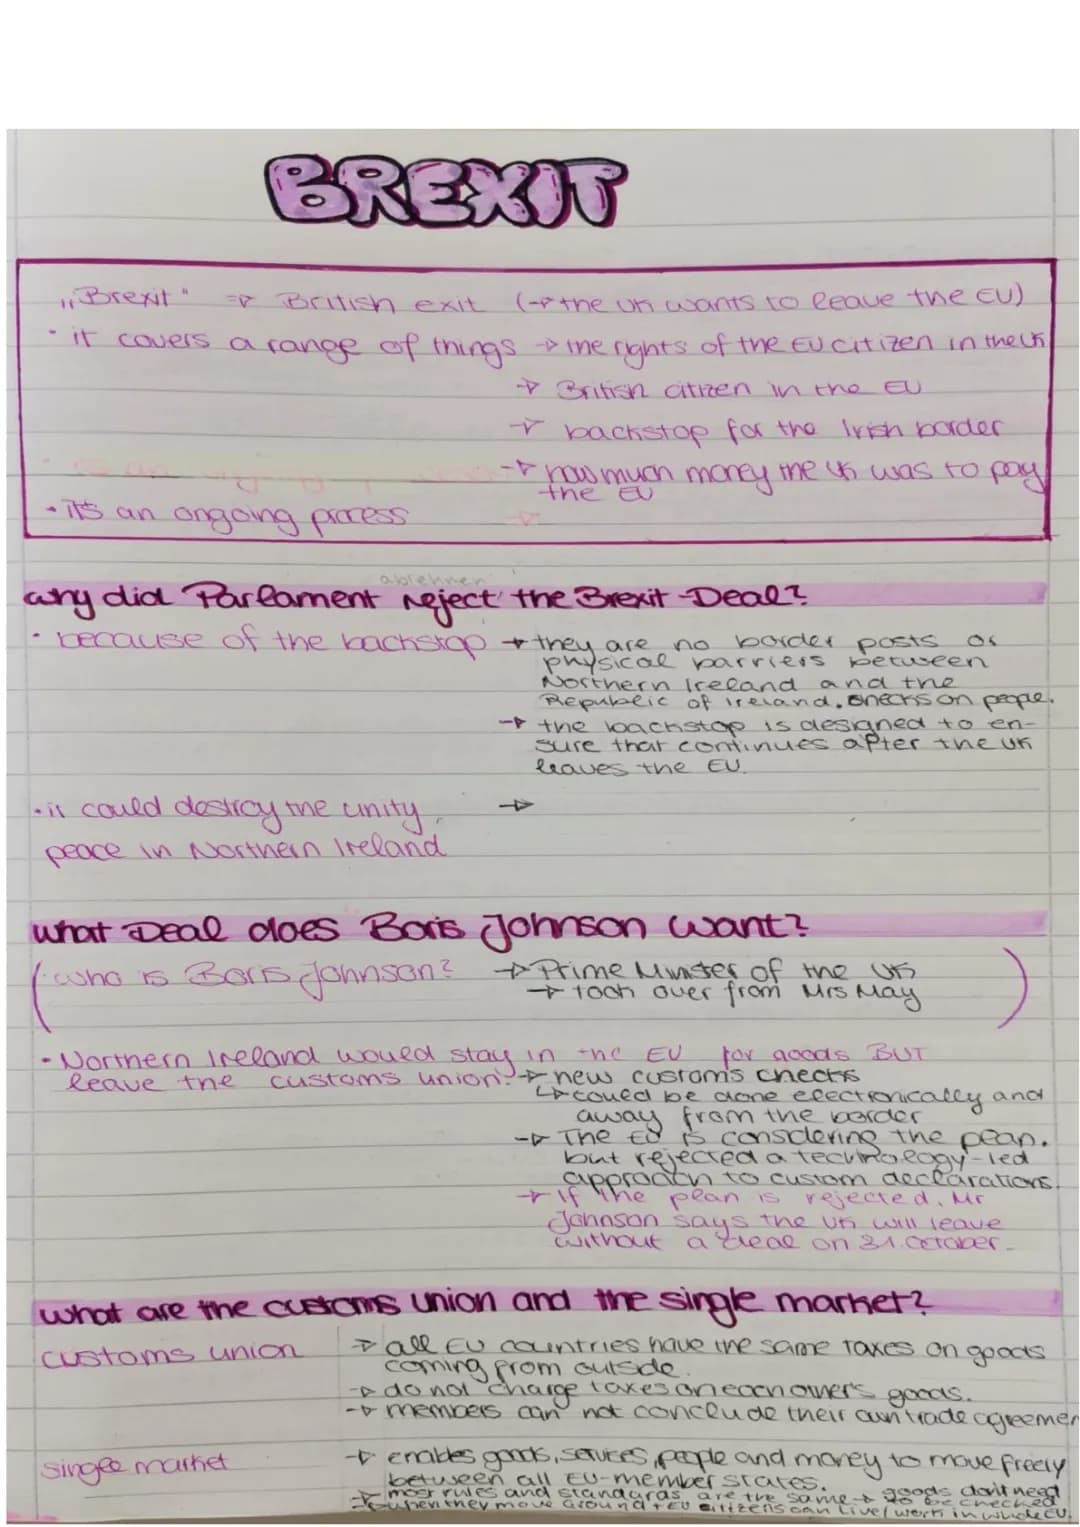 BREXIT
„Brexit" => British exit (→ the UK wants to leave the EU)
• it covers a range of things → the rights of the EU citizen in the UK
→ British citizen in the EU
→ backstop for the Irish border
→ how much money the UK was to pay
the EU
• it's an ongoing process
ablehnen
why did Parlament reject the Brexit-Deal?
• because of the backstop → they are no border posts or
physical barriers between
Northern Ireland and the
Republic of Ireland. checks on people.
→ the backstop is designed to en-
sure that continues after the UK
leaves the EU.
• it could destroy the unity, →
peace in Northern Ireland
what Deal does Boris Johnson want?
(• who is Boris Johnson? → Prime Minister of the UK )
→ took over from Mrs May
• Northern Ireland would stay in the EU for goods BUT
leave the customs union. → new customs checks
↳ could be done electronically and
away from the border
→ The EU is considering the plan.
but rejected a technology-led
approach to custom declarations.
→ If the plan is rejected, Mr
Johnson says the UK will leave
without a deal on 31. October.
what are the customs union and the single market?
customs union → all EU countries have the same taxes on goods
coming from outside.
→ do not charge taxes on each other's goods.
→ members can not conclude their own trade agreemen
single market → enables goods, services, people and money to move freely
between all EU-member states.
→ most rules and standards are the same → goods don't need
to be checked
when they move around → EU citizens can live/work in whole EU.